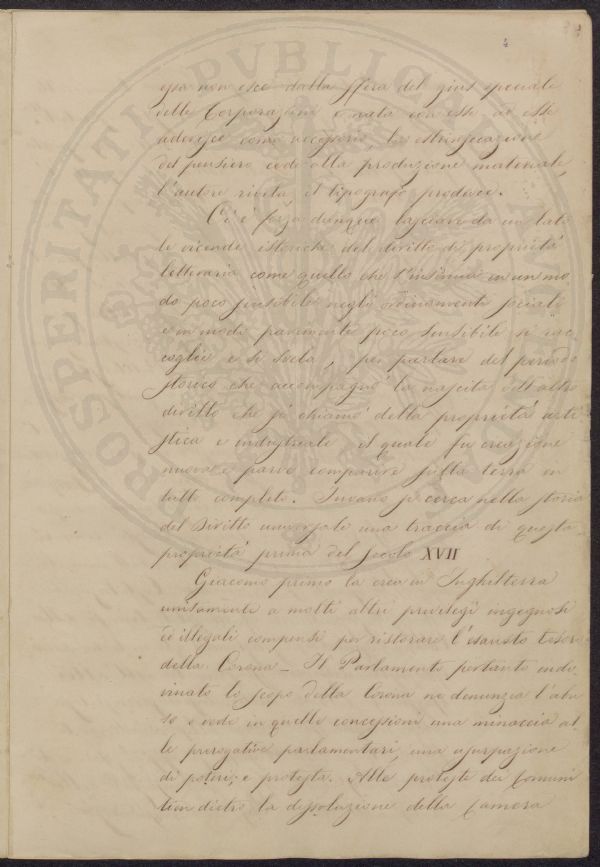 essa non esce dalla sfera del gius speciale
delle Corporazioni e nata con esse ad esse
aderisce come accessorio la estrinsecazione
del pensiero cede alla produzione materiale,
l'autore vieta, il tipografo produce.
Ci è forza dunque lasciare da un lato
le vicende istoriche del diritto di proprietà
letteraria come quello che s'insinua in un mo
do poco sensibile negli ordinamenti sociali
e in modo parimente poco sensibile si rac
coglie e si svela, per parlare del periodo
storico che accompagnò la nascita dell'altro
diritto che si chiamò della proprietà arti
stica e industriale il quale fu creazione
nuova e parve comparire sulla terra in
tutto completo. Invano si cerca nella storia
del Diritto universale una traccia di questa
proprietà prima del secolo XVII
Giacomo primo la crea in Inghilterra
unitamente a molti altri privilegi ingegnosi
ed illegali compensi per ristorare l'esausto tesoro
della Corona _ Il Parlamento pertanto indo
vinato lo scopo della Corona ne denunzia l'abu
so e vede in quelle concessioni una minaccia al
le prerogative parlamentari, una usurpazione
di potere; e protesta. Alle proteste dei Comuni
tien dietro la dissoluzione della Camera
PROSPERITATI PUBLICAE